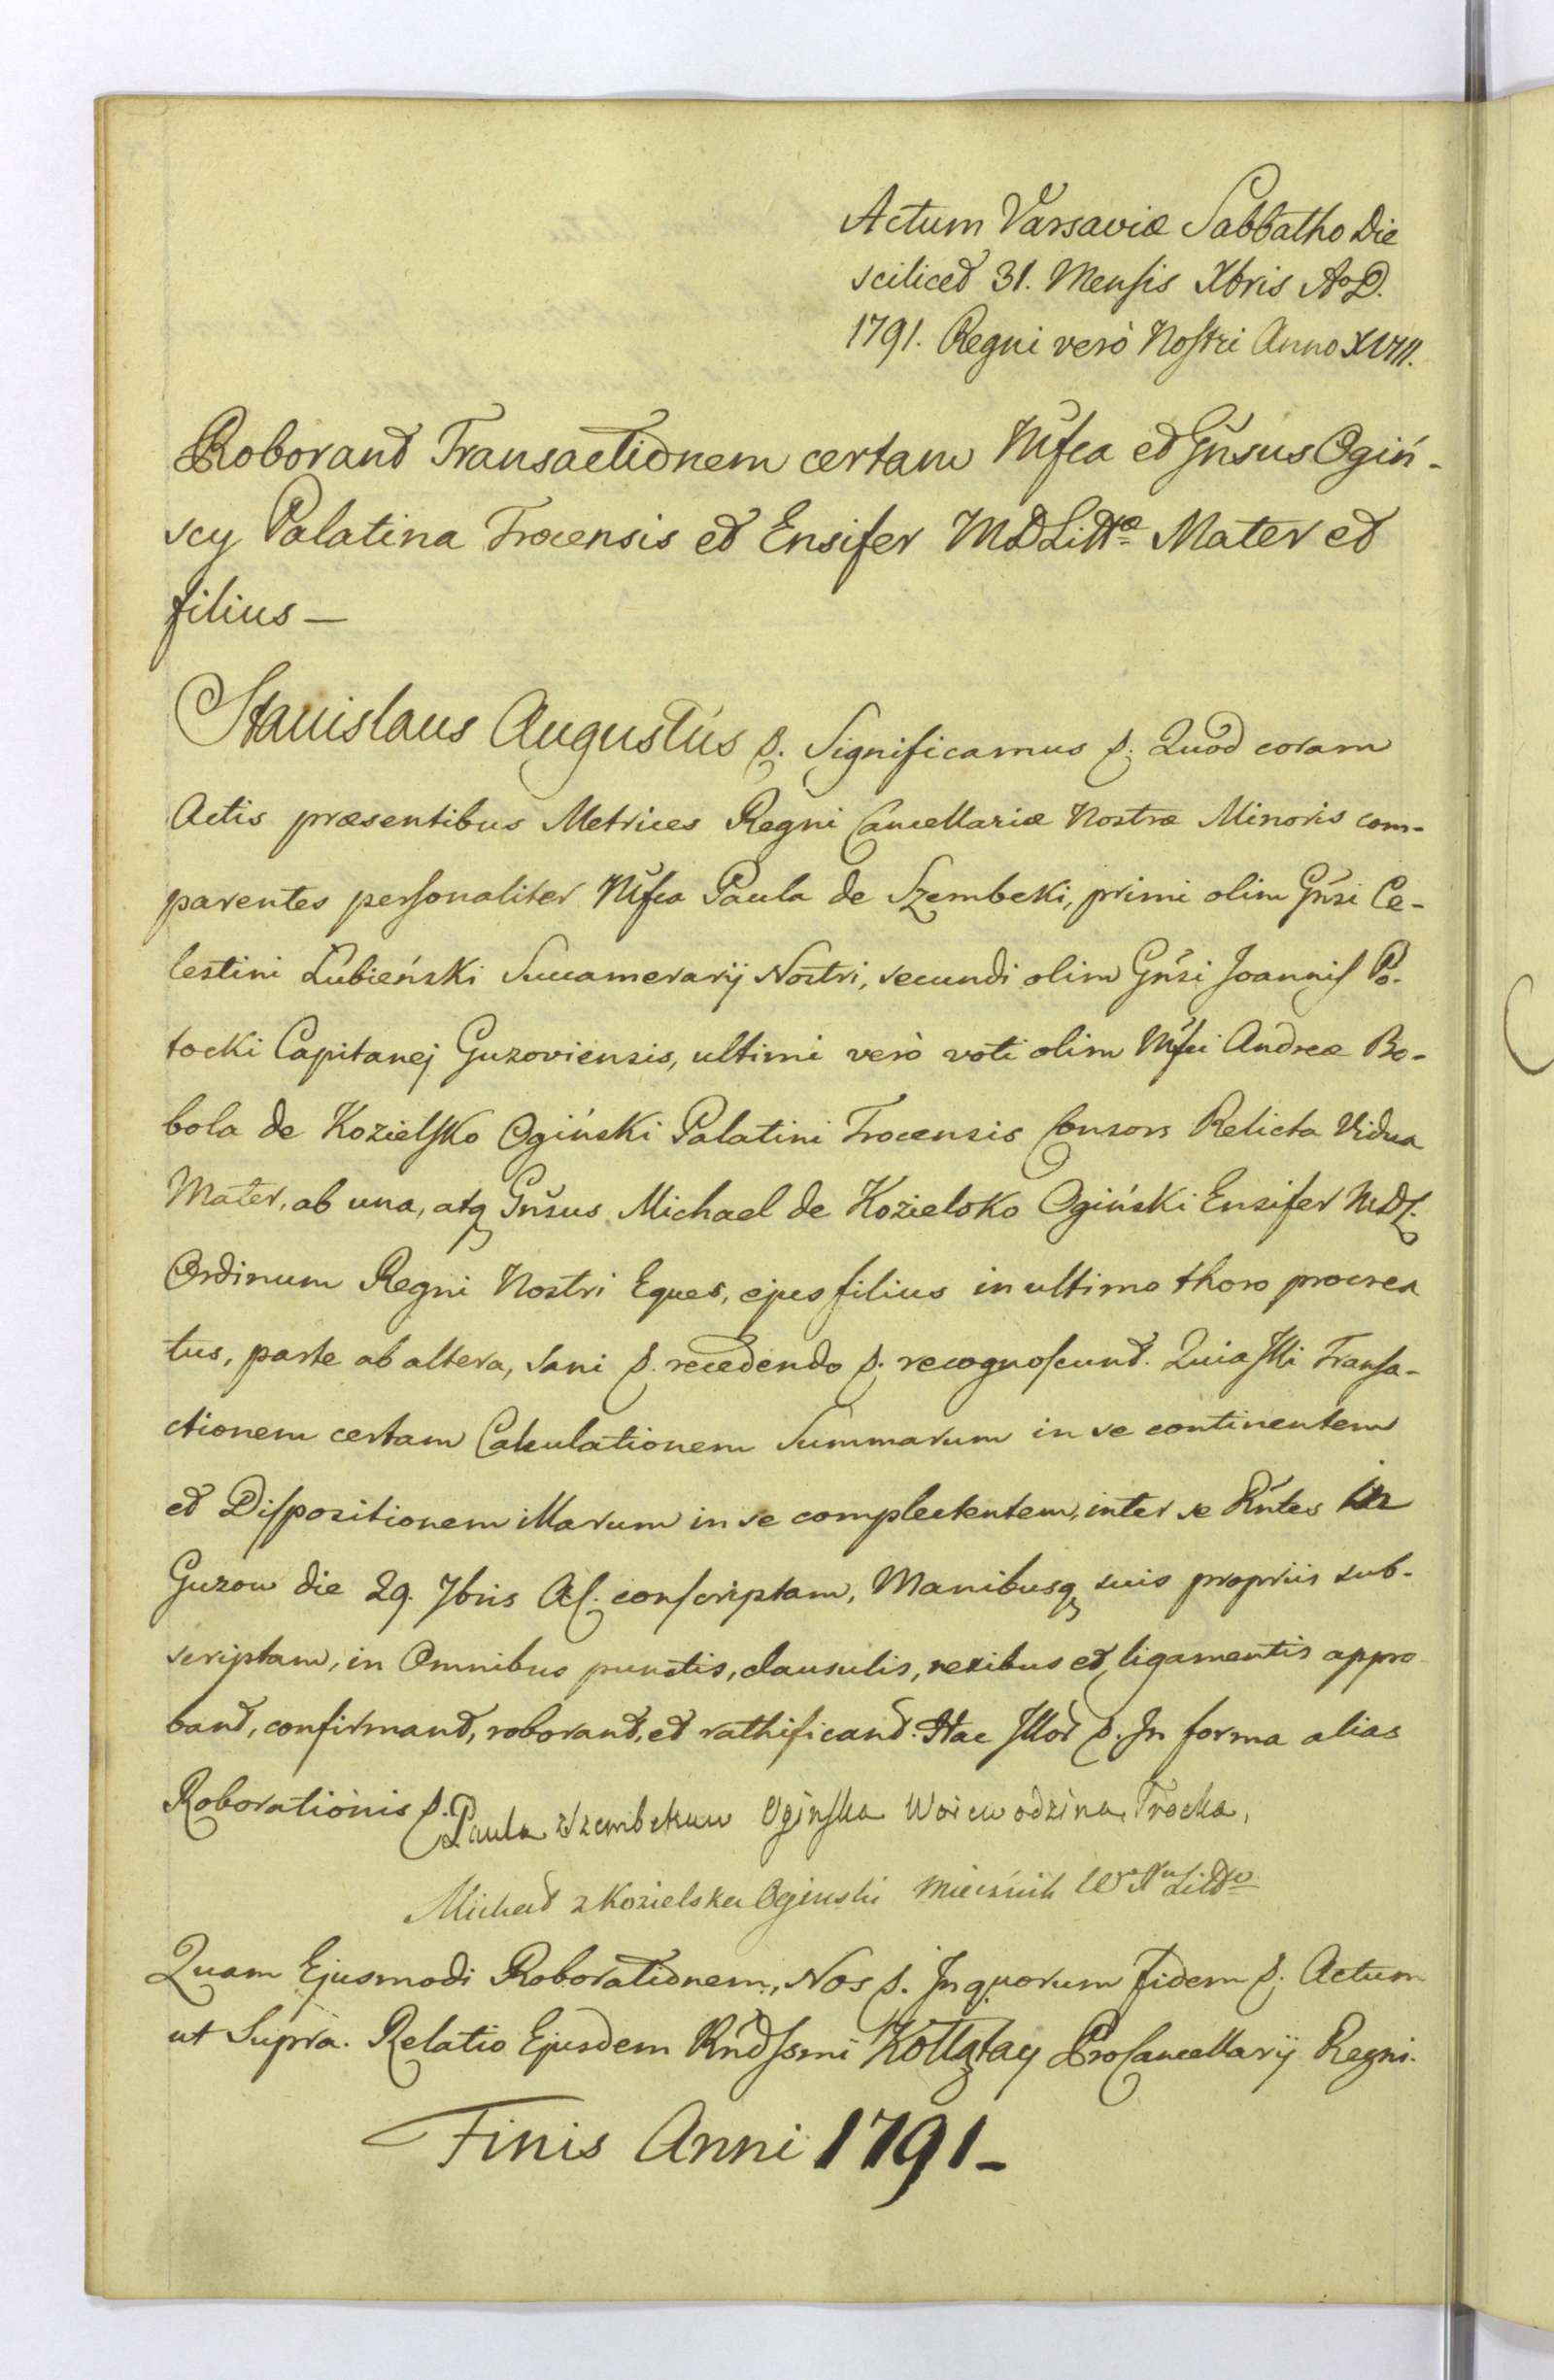 Actum Varsaviæ Sabbatho Die
scilicet 31. Mensis Xbris AoD.
1791. Regni verò Nostri Anno XVIII.
Roborant Transactionem certam Mfca et Gnsus Ogiń-
scy Palatina Trocensis et Ensifer MDLittæ Mater et
filius —
Stanislaus Augustus p. Significamus p. Quod coram
Actis præsentibus Metrices Regni Cancellariæ Nostræ Minoris com-
parentes personaliter Mfca Paula de Szembeki, primi olim Gnsi Ce-
lestini Łubieński Succamerarij Nostri, secundi olim Gnsi Joannis Po-
tocki Capitanej Guzoviensis, ultimi verò voti olim Mfci Andreæ Bo-
bola de Kozielsko Ogiński Palatini Trocensis Consors Relicta Vidua
Mater, ab una, atq Gnsus Michael de Kozielsko Ogiński Ensifer MDL.
Ordinum Regni Nostri Eques, ejus filius in ultimo thoro procrea
tus, parte ab altera, sani p. recedendo p. recognoscunt. Quia Illi Transa-
ctionem certam Calculationem Summarum in se continentem
et Dispositionem illarum in se complectentem, inter se Rntes in
Guzow die 29. 7bris Af. conscriptam, Manibusq suis propriis sub-
scriptam, in Omnibus punctis, clausulis, nexibus et ligamentis appro
bant, confirmant, roborant, et rathificant. Hac Illor p. In forma alias
Roborationis p. Paula z Szembekuw Oginska Woiewodzina Trocka,
Michał z Kozielska Oginski Miecznik W Xa Litto
Quam Ejusmodi Roborationem, Nos p. In quorum fidem p. Actum
ut Supra. Relatio Ejusdem Rndssmi Kołłątay ProCancellarij Regni.
Finis Anni 1791 -